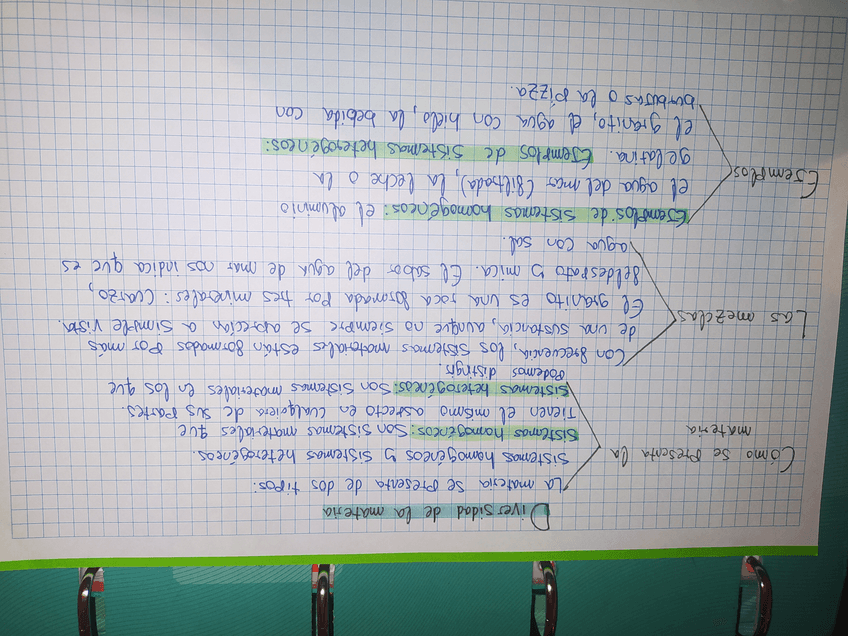 Diversidad de la materia
Cómo se presenta la
materia
La materia se presenta de dos tipos:
sistemas homogéneos y sistemas heterogéneos.
Sistemas homogéneos: Son sistemas materiales que
tienen el mismo aspecto en cualquiera de sus partes.
Sistemas heterogéneos: Son sistemas materiales en los que
podemos distingir.
Las mezclas
Con frecuencia, los sistemas materiales están formados por más
de una sustancia, aunque no siempre se aprecian a simple vista.
El granito es una roca formada por tres minerales: cuarzo,
feldespato y mica. El sabor del agua de mar nos indica que es
agua con sal.
Ejemplos
Ejemplos de sistemas homogéneos: el aluminio
el agua del mar (filtrada), la leche o la
gelatina. Ejemplos de sistemas heterogéneos:
el granito, el agua con hielo, la bebida con
burbujas o la pizza.